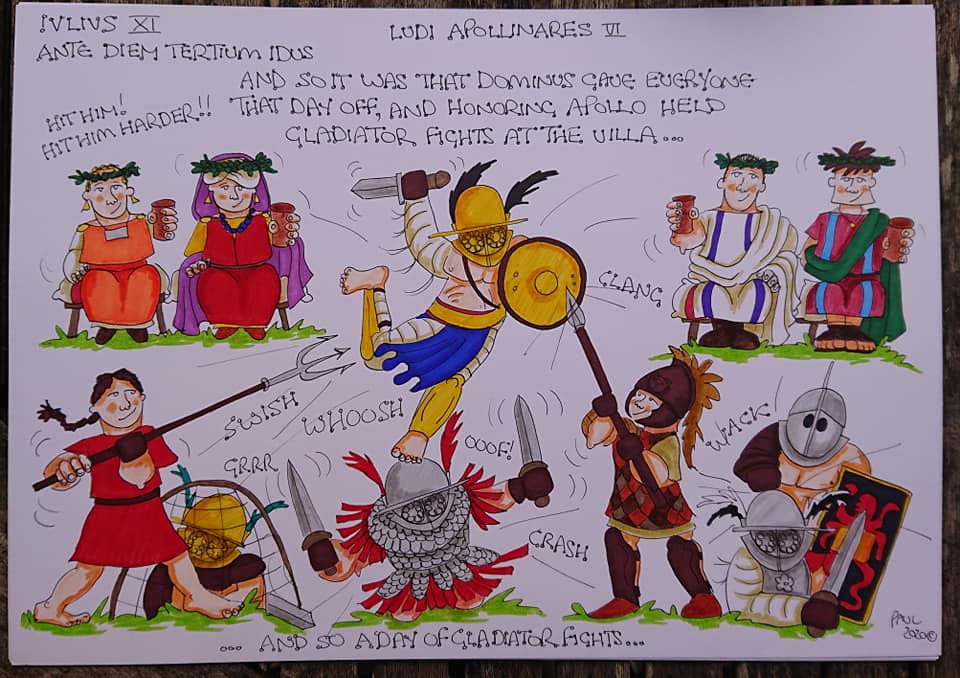 IVLIVS XI
ANTE DIEM TERTIUM IDUS
LUDI APOLLINARES VI
AND SO IT WAS THAT DOMINUS GAVE EVERYONE
THAT DAY OFF, AND HONORING APOLLO HELD
GLADIATOR FIGHTS AT THE VILLA...
HIT HIM!
HIT HIM HARDER!!
CLANG
SWISH
WHOOSH
OOOF!
WACK
GRRR
CRASH
... AND SO A DAY OF GLADIATOR FIGHTS...
PAUL
2020©